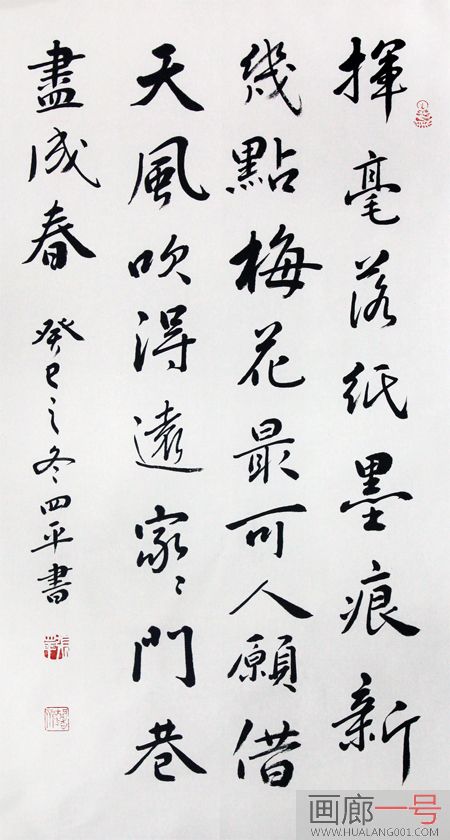 揮毫落紙墨痕新
幾點梅花最可人願借
天風吹得遠家〻門巷
盡成春
癸巳之冬四平書
画廊一号
WWW.HUALANG001.COM